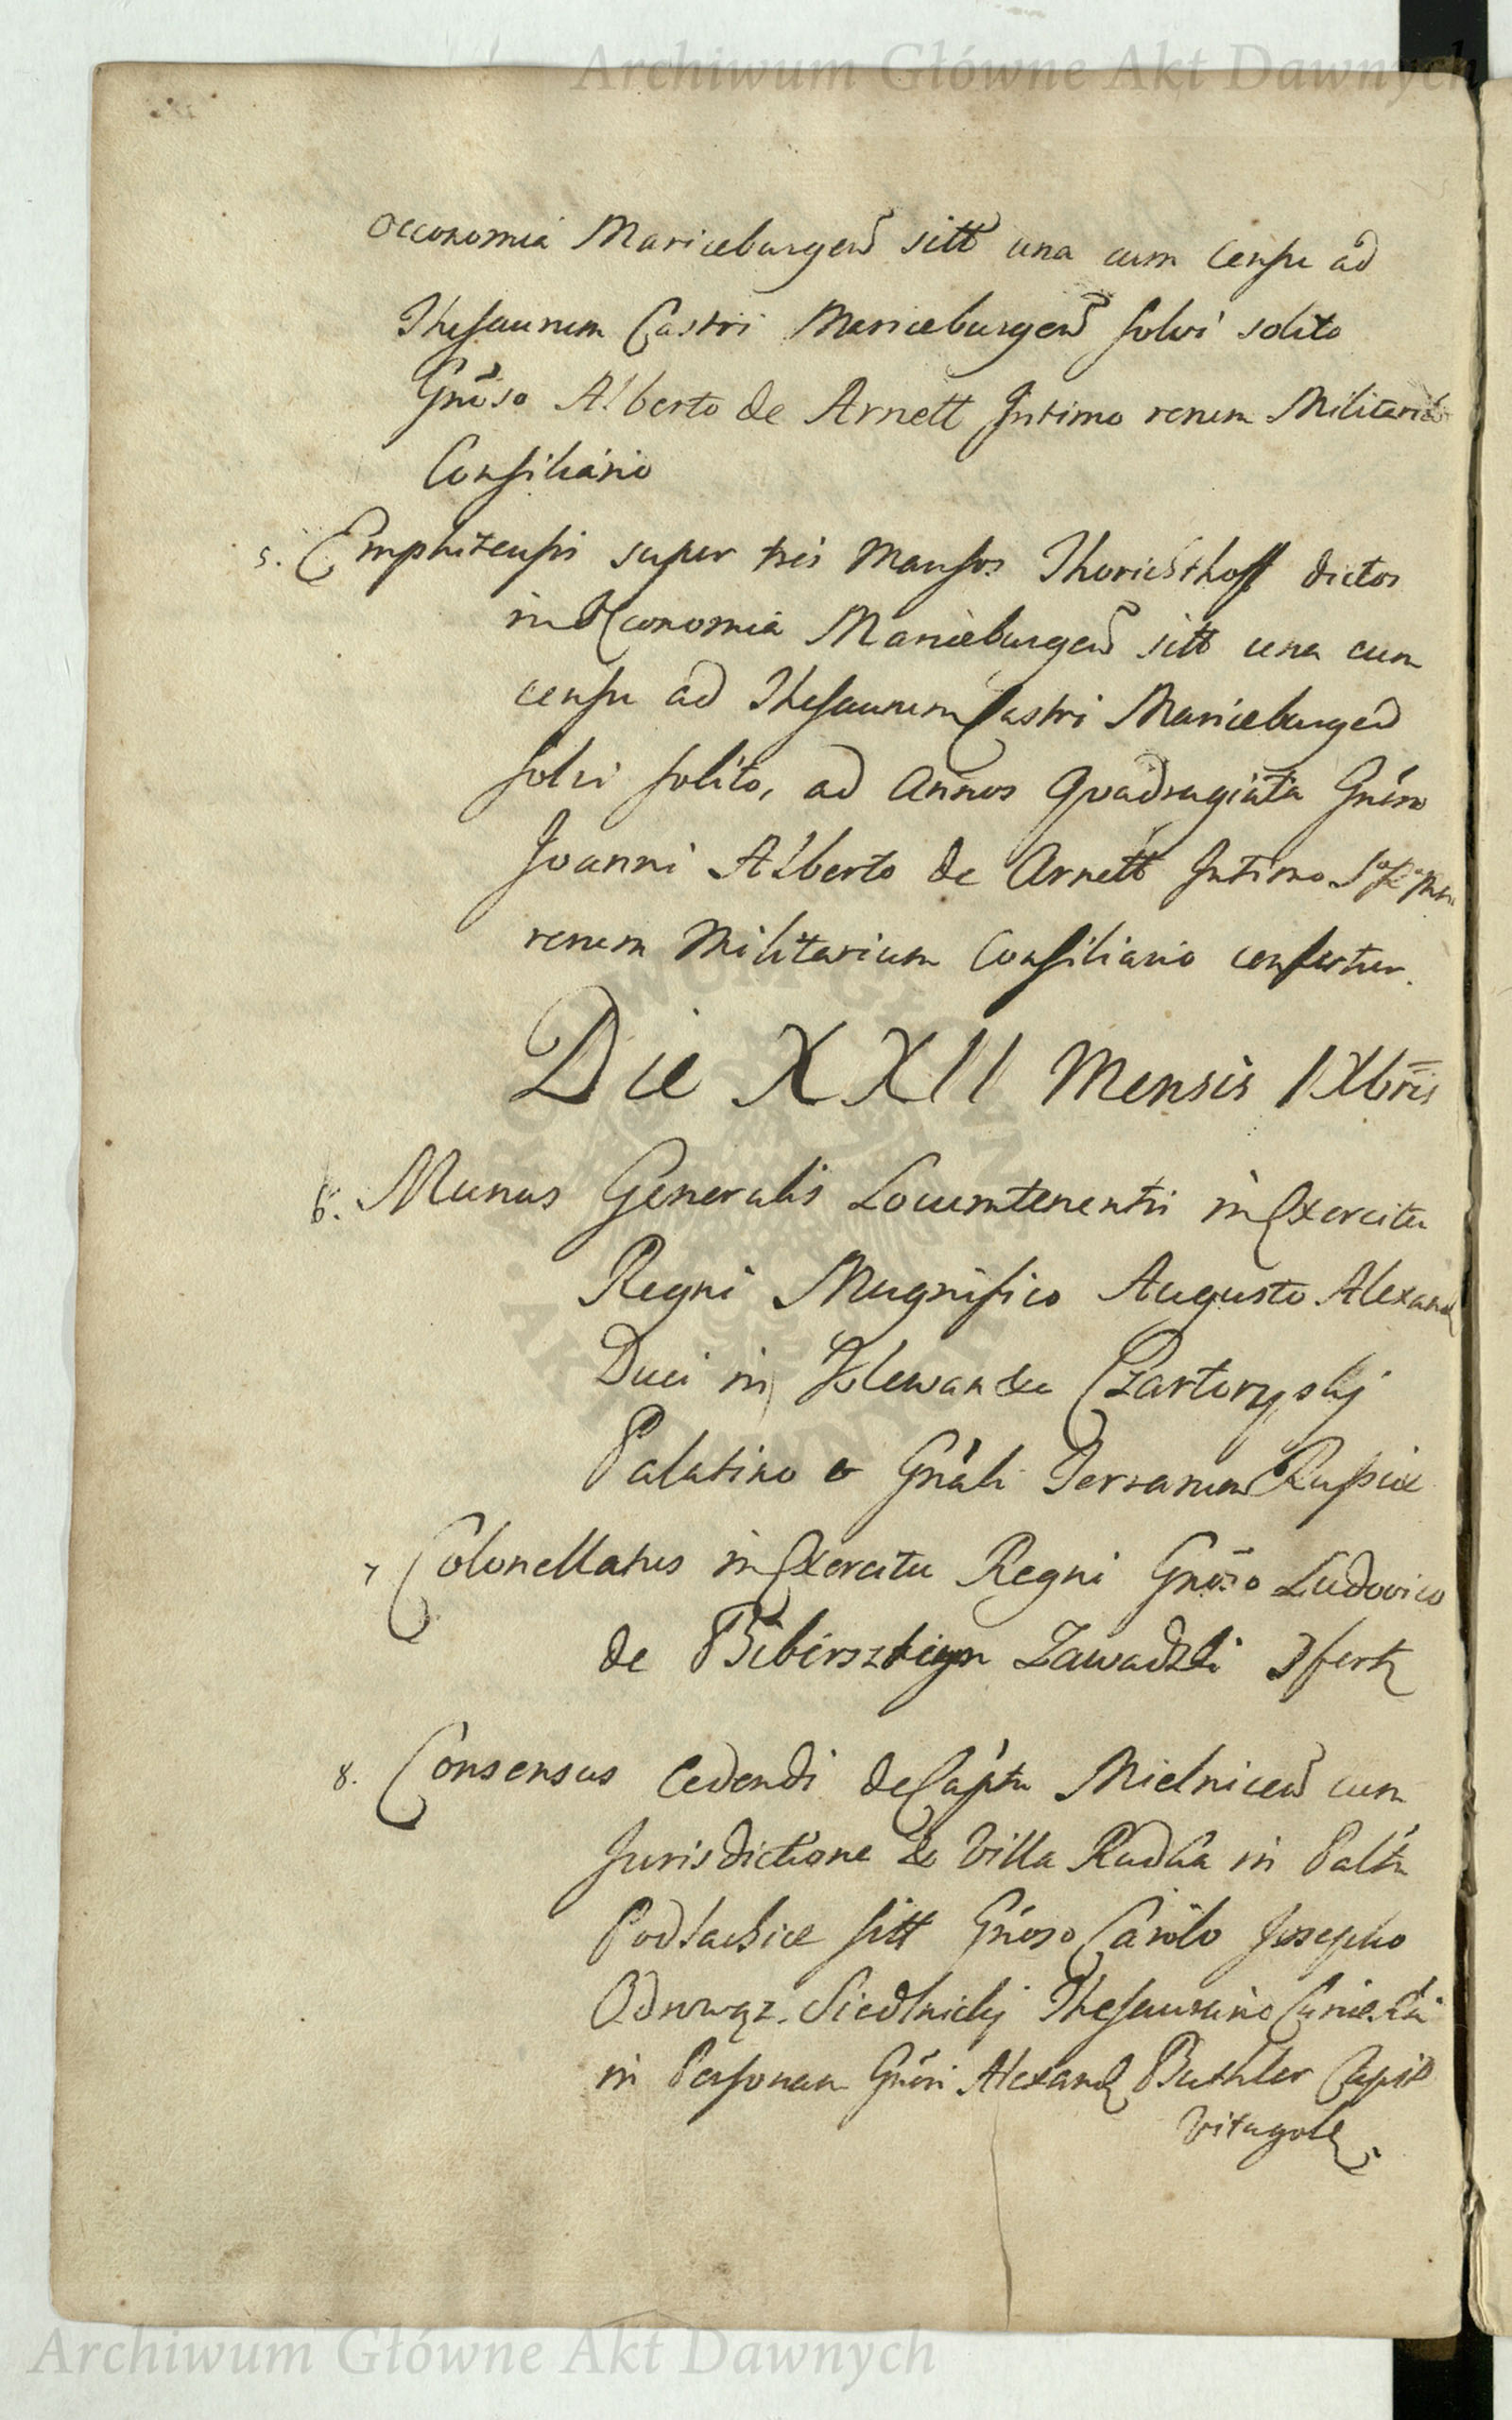 Archiwum Główne Akt Dawnych
oeconomia Mariaeburgen sitt una cum Censu ad
Thesaurum Castri Mariaeburgen solvi solito
Gnoso Alberto de Arnett Intimo rerum Militarium
Consiliario
5. Emphiteusis super tres Mansos Thorichthoff dictos
in Oeconomia Mariaeburgen sitt una cum
censu ad Thesaurum Castri Mariaeburgen
solvi solito, ad Annos Quadraginta Gnoso
Joanni Alberto de Arnett Intimo
rerum Militarium Consiliario confertur.
Die XXII Mensis IXbris
6. Munus Generalis Locumtenentis in Exercitu
Regni Magnifico Augusto Alexand
Duci in Klewan &c Czartoryskj
Palatino & Gnali Terrarum Russiae
7 Colonellatus in Exercitu Regni Gnoso Ludovico
de Biberszteyn Zawadzki Dfertr
8. Consensus Cedendi de Captu Mielnicen cum
Jurisdictione & Villa Rudka in Paltu
Podlachiae sitt Gnoso Carolo Josepho
Odrowąz. Siedlnickj Thesaurario Curiae Rni
in Personam Gnosi Alexand Buthler Capit
Vitagoln
Archiwum Główne Akt Dawnych